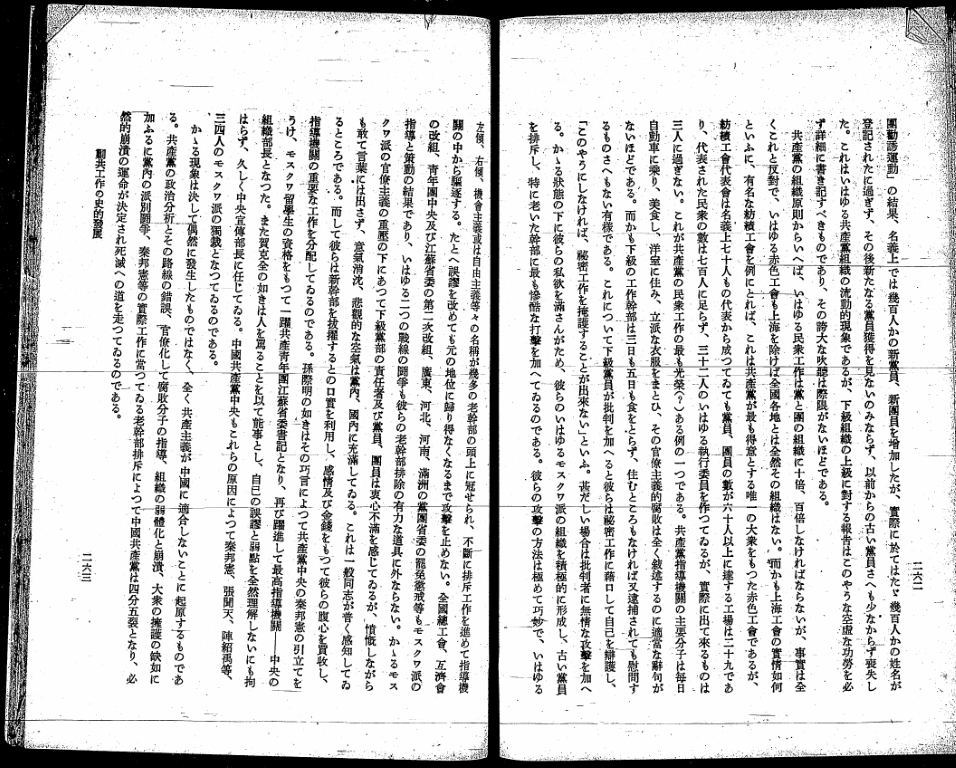 二六二
團勸誘運動」の結果、名義上では幾百人かの新黨員、新團員を增加したが、實際に於てはたゞ幾百人かの姓名が
登記されたに過ぎず、その後新たなる黨員獲得を見ないのみならず、以前からの古い黨員さへも少なからず喪失し
た。これはいはゆる共產黨組織の流動的現象であるが、下級組織の上級に對する報吿はこのやうな空虛な功勞を必
ず詳細に書き記すべきものであり、その誇大な映聽は際限がないほどである。
共產黨の組織原則からいへば、いはゆる民衆工作は黨と團の組織に十倍、百倍しなければならないが、事實は全
くこれと反對で、いはゆる赤色工會も上海を除けば全國各地とは全然その組織はない。而かも上海工會の實情如何
といふに、有名な紡積工會を例にとれば、これは共產黨が最も得意とする唯一の大衆をもつた赤色工會であるが、
紡積工會代表會は名義上七十人もの代表から成つてゐても黨員、團員の數が六十人以上に達する工場は二十九であ
り、代表された民衆の數は七百人に足らず、三十二人のいはゆる執行委員を作つてゐるが、實際に出て來るものは
三人に過ぎない。これが共產黨の民衆工作の最も光榮(?)ある例の一つである。共產黨指導機關の主要分子は每日
自動車に乘り、美食し、洋室に住み、立派な衣服をまとひ、その官僚主義的腐敗は全く敘述するのに適當な辭句が
ないほどである。而かも下級の工作幹部は三日も五日も食をとらず、住むところもなければ又逮捕されても慰問す
るものさへもない有樣である。これについて下級黨員が批判を加へると彼らは秘密工作に藉口して自己を辯護し、
「このやうにしなければ、秘密工作を掩護することが出來ない」といふ。甚だしい場合は批判者に無情な攻擊を加へ
る。かゝる狀態の下に彼らの私欲を滿さんがため、彼らのいはゆるモスクワ派の組織を積極的に形成し、古い黨員
を排斥し、特に老いた幹部に最も慘酷な打擊を加へてゐるのである。彼らの攻擊の方法は極めて巧妙で、いはゆる
左傾、右傾、機會主義或は自由主義等々の名稱が幾多の老幹部の頭上に冠せられ、不斷に排斥工作を進めて指導機
關の中から驅逐する。たとへ誤謬を改めても元の地位に歸り得なくなるまで攻擊を止めない。全國總工會、互濟會
の改組、靑年團中央及び江蘇省委の第二次改組、廣東、河北、河南、滿洲の黨團省委の罷免懲戒等もモスクワ派の
指導と策動の結果であり、いはゆる二つの戰線の鬪爭も彼らの老幹部排除の有力な道具に外ならない。かゝるモス
クワ派の官僚主義の重壓の下にあつて下級黨部の責任者及び黨員、團員は衷心不滿を感じてゐるが、憤慨しながら
も敢て言葉には出さず、意氣消沈、悲觀的な空氣は黨內、國內に充滿してゐる。これは一般同志が普く感知してゐ
るところである。而して彼らは新幹部を拔擢するとの口實を利用し、感情及び金錢をもつて彼らの腹心を買收し、
指導機關の重要な工作を分配してゐるのである。孫際明の如きはその巧言によつて共產黨中央の秦邦憲の引立てを
うけ、モスクワ留學生の資格をもつて一躍共產靑年團江蘇省委書記となり、再び躍進して最高指導機關――中央の
組織部長となつた。また賀克全の如きは人を罵ることを以て能事とし、自己の誤謬と弱點を全然理解しないにも拘
はらず、久しく中央宣傳部長に任じてゐる。中國共產黨中央もこれらの原因によつて秦邦憲、張聞天、陳紹禹等、
三四人のモスクワ派の獨裁となつてゐるのである。
かゝる現象は決して偶然に發生したものではなく、全く共產主義が中國に適合しないことに起原するものであ
る。共產黨の政治分析とその路線の錯誤、官僚化して腐敗分子の指導、組織の弱體化と崩潰、大衆の擁護の缺如に
加ふるに黨內の派別鬪爭、秦邦憲等の實際工作に當つてゐる老幹部排斥によつて中國共產黨は四分五裂となり、必
然的崩潰の運命が決定され死滅への道を走つてゐるのである。
剿共工作の史的發展
二六三